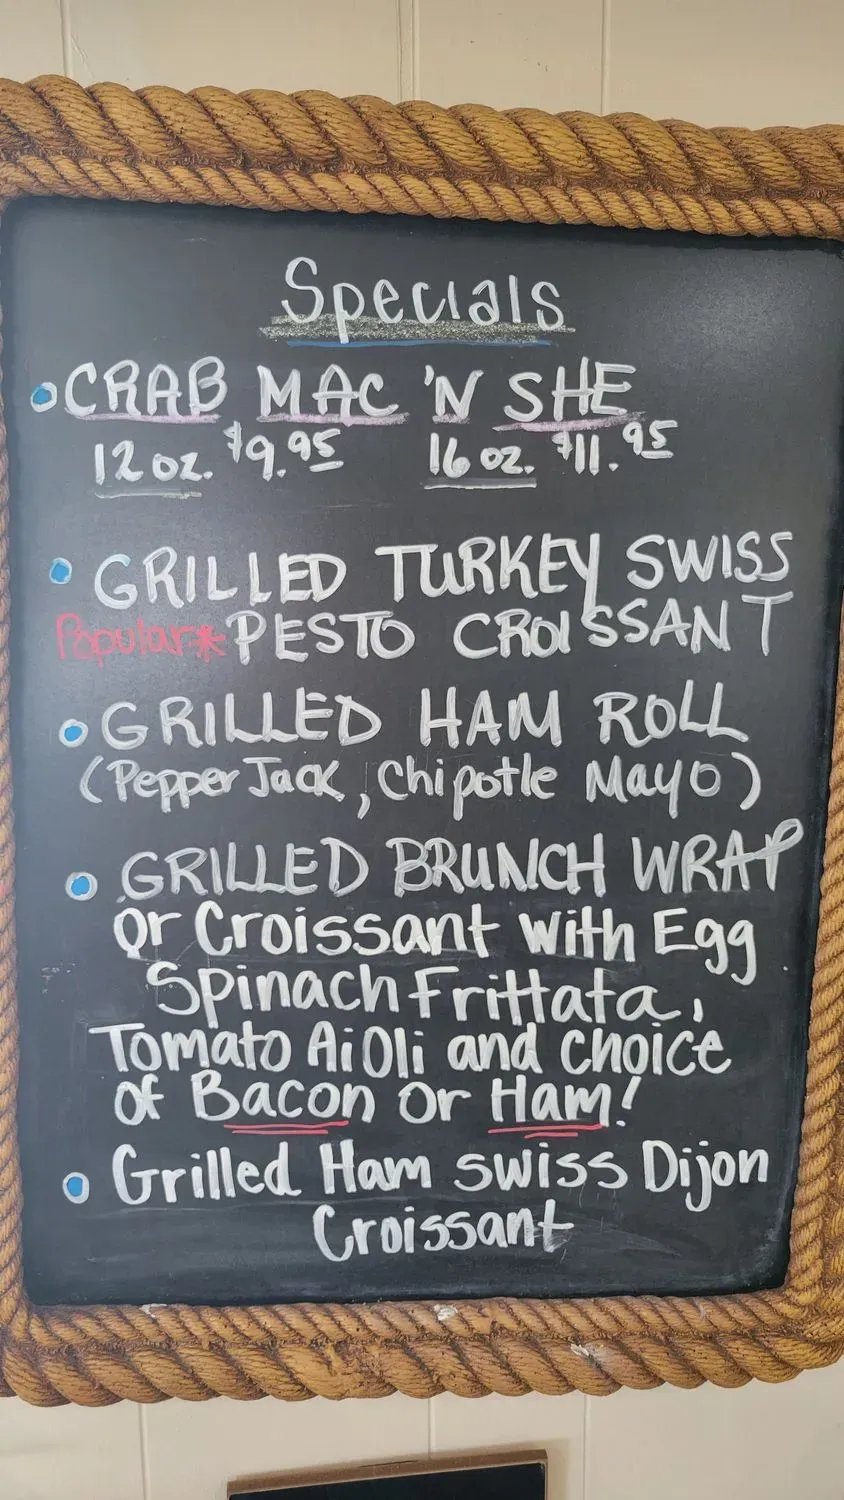 Specials
CRAB MAC 'N SHE
12 oz. $9.95 16 oz. $11.95
GRILLED TURKEY SWISS
Popular* PESTO CROISSANT
GRILLED HAM ROLL
(Pepper Jack, Chipotle Mayo)
GRILLED BRUNCH WRAP
or Croissant with Egg
Spinach Frittata,
Tomato AiOli and choice
of Bacon or Ham!
Grilled Ham swiss Dijon
Croissant